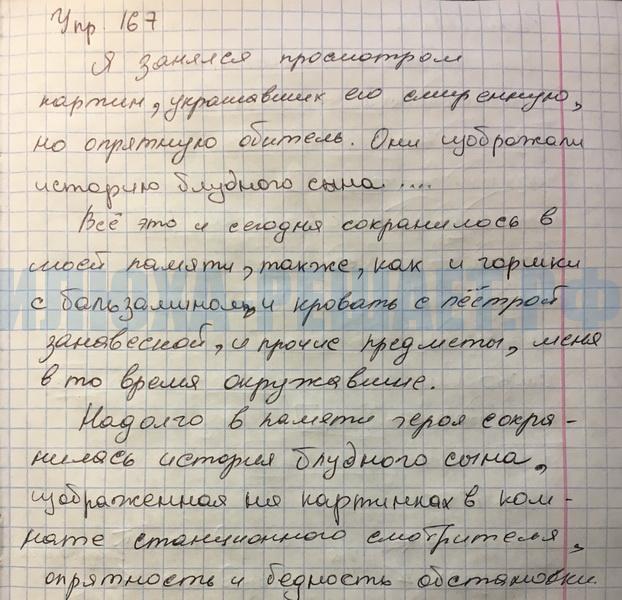 Упр. 167
Я занялся просмотром
картин, украшавших его смиренную,
но опрятную обитель. Они изображали
историю блудного сына....
Всё это и сегодня сохранилось в
моей памяти, также, как и горшки
с бальзамином, и кровать с пёстрой
занавеской, и прочие предметы, меня
в то время окружавшие.
Надолго в памяти героя сохра-
нилась история блудного сына,
изображенная на картинках в ком-
нате станционного смотрителя,
опрятность и бедность обстановки.
ИЛЮХА-РЕШАЕТ.РФ